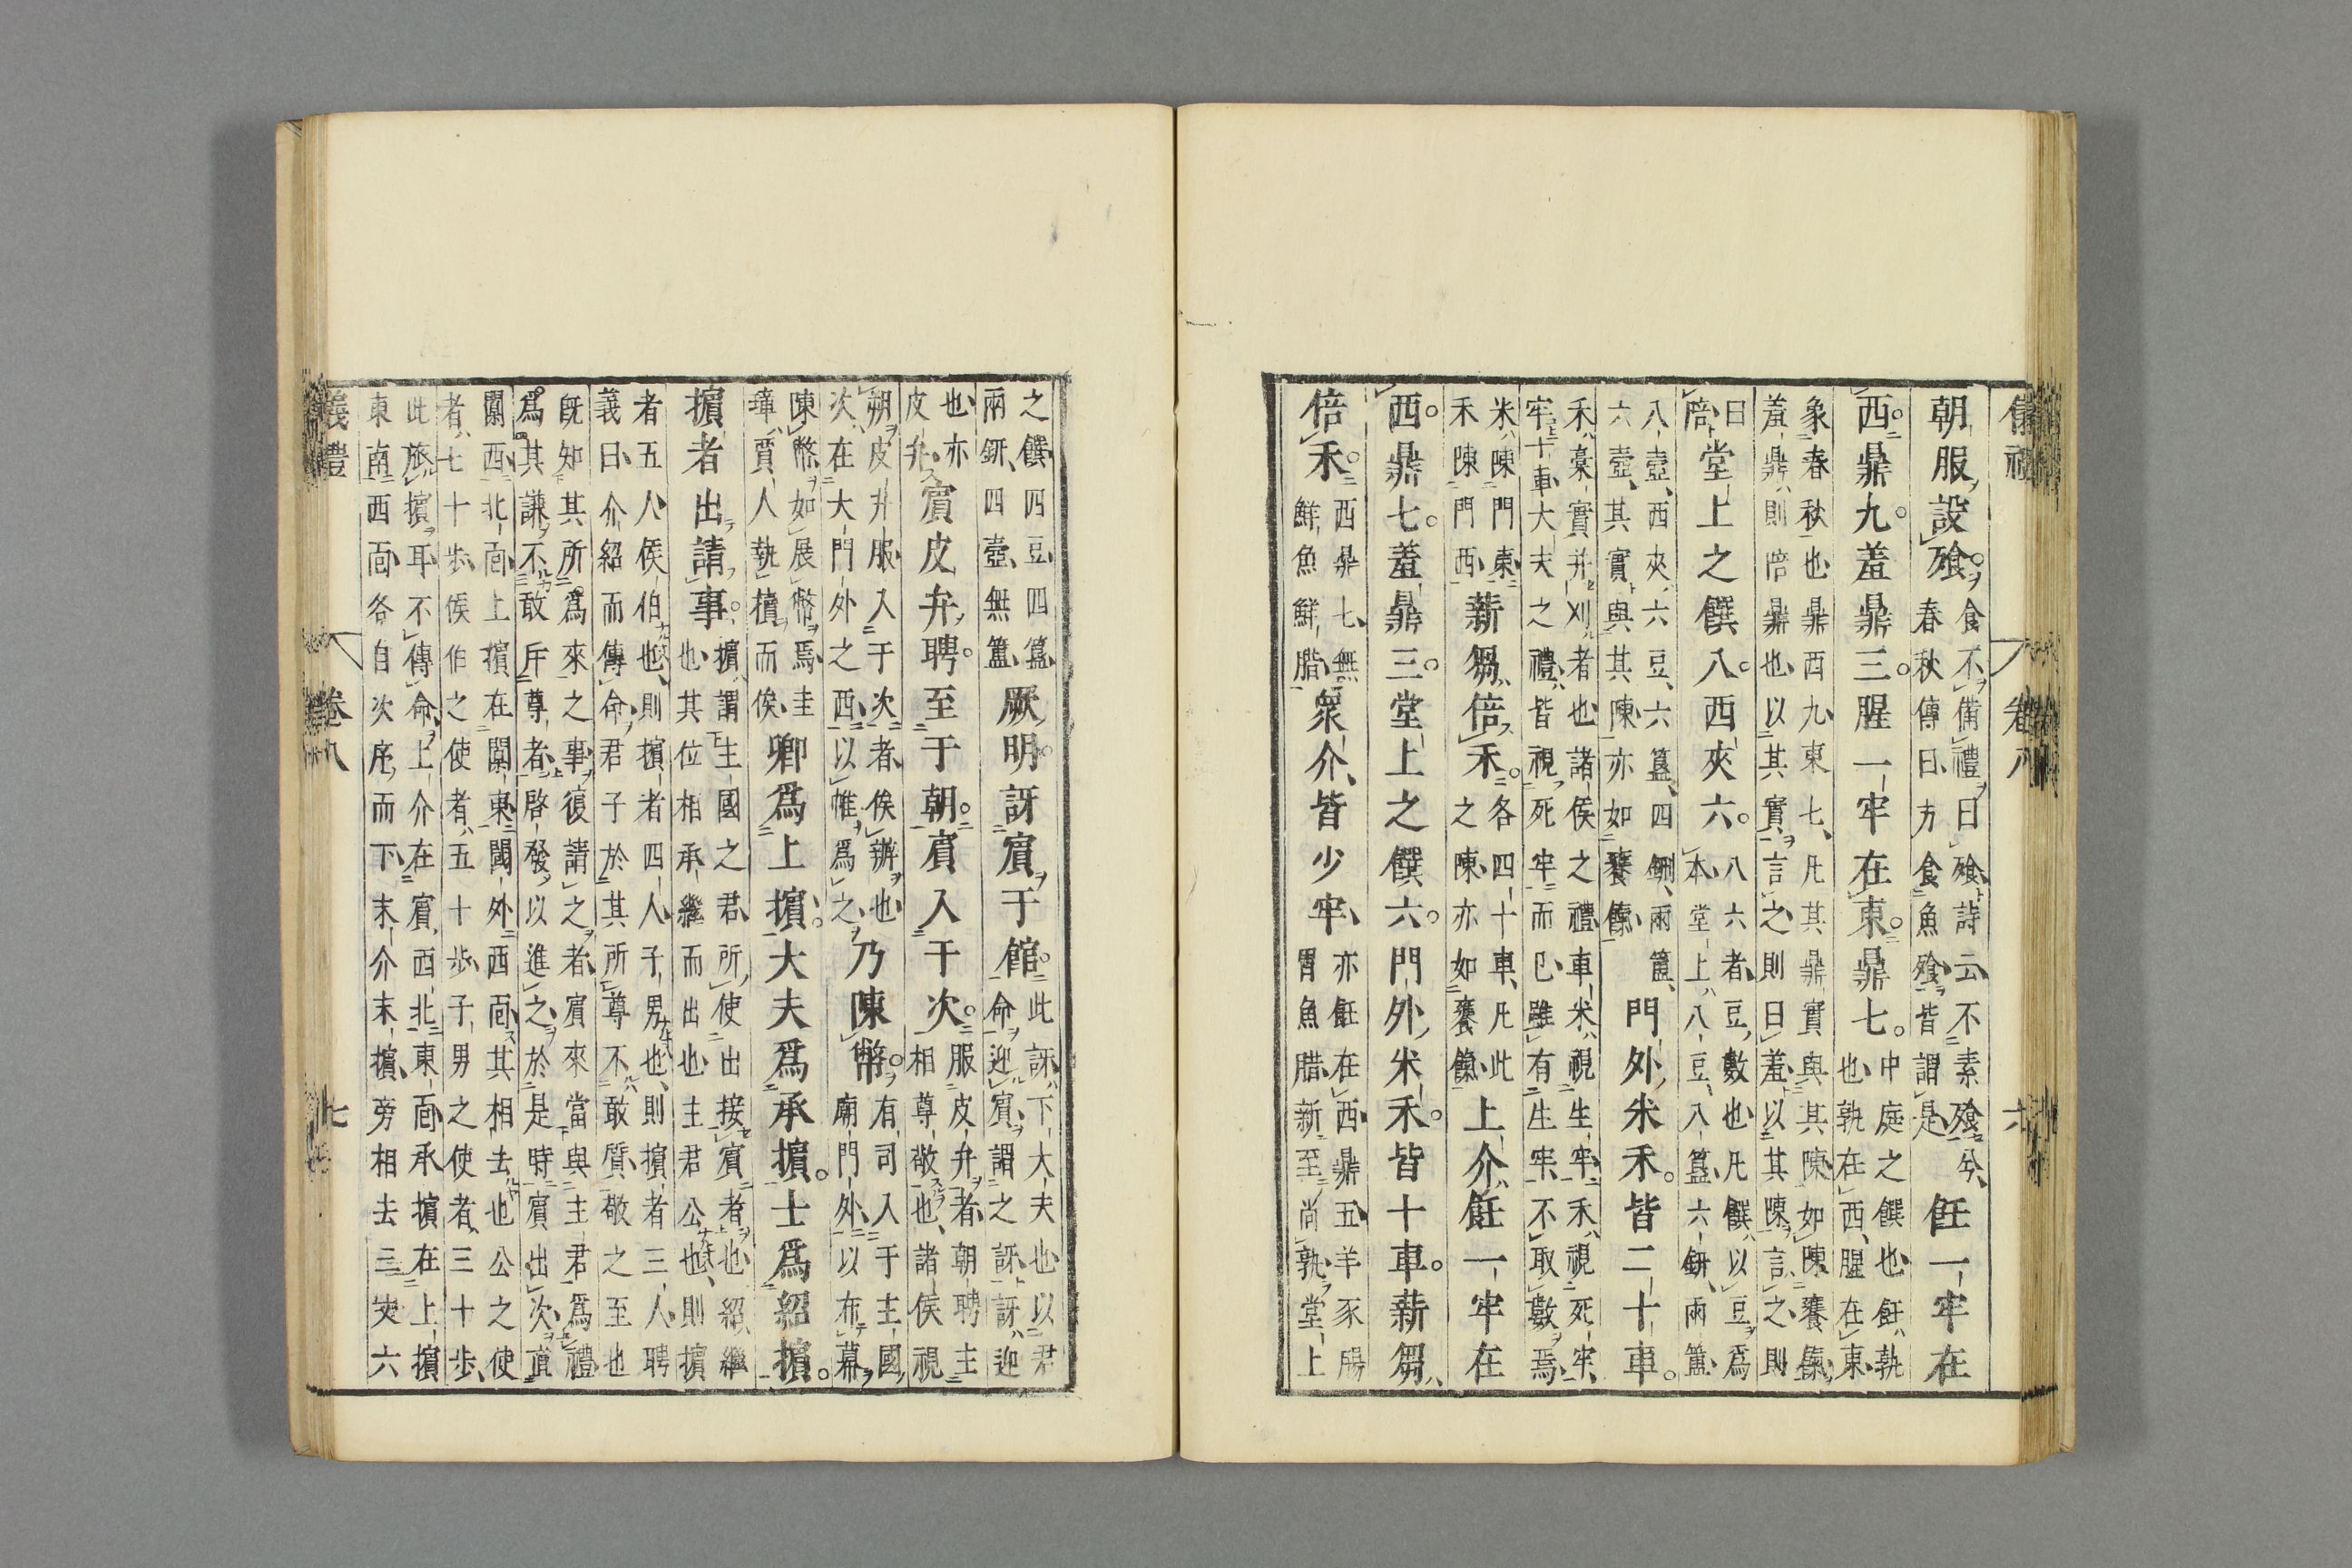 儀禮 卷八 六
朝服設飧食不備禮曰飧詩云不素飧兮
春秋傳曰方食魚飧皆謂是飪一牢在
西鼎九羞鼎三腥一牢在東鼎七中庭之饌也飪孰
也孰在西腥在東
象春秋也鼎西九東七凡其鼎實與其陳如陳饔餼
羞鼎則陪鼎也以其實言之則曰羞以其陳言之則
曰陪堂上之饌八西夾六八六者豆數也凡饌以豆爲
本堂上八豆八簋六鉶兩簠
八壺西夾六豆六簋四鉶兩簠
六壺其實與其陳亦如饔餼門外米禾皆二十車
禾稾實并刈者也諸侯之禮車米視生牢禾視死牢
牢十車大夫之禮皆視死牢而已雖有生牢不取數焉
米陳門東
禾陳門西薪芻倍禾各四十車凡此
之陳亦如饔餼上介飪一牢在
西鼎七羞鼎三堂上之饌六門外米禾皆十車薪芻
倍禾西鼎七無
鮮魚鮮腊衆介皆少牢亦飪在西鼎五羊豕腸
胃魚腊新至尚孰堂上
之饌四豆四簋
兩鉶四壺無簠厥明訝賓于館此訝下大夫也以君
命迎賓謂之訝訝迎
也亦
皮弁賓皮弁聘至于朝賓入于次服皮弁者朝聘主
相尊敬也諸侯視
朔皮弁服入于次者俟辦也
次在大門外之西以帷爲之乃陳幣有司入于主國
廟門外以布幕
陳幣如展幣焉圭
璋賈人執櫝而俟卿爲上擯大夫爲承擯士爲紹擯
擯者出請事擯謂主國之君所使出接賓者也紹繼
也其位相承繼而出也主君公也則擯
者五人侯伯也則擯者四人子男也則擯者三人聘
義曰介紹而傳命君子於其所尊不敢質敬之至也
旣知其所爲來之事復請之者賓來當與主君爲禮
爲其謙不敢斥尊者啓發以進之於是時賓出次直
闑西北面上擯在闑東閾外西面其相去也公之使
者七十步侯伯之使者五十步子男之使者三十步
此旅擯耳不傳命上介在賓西北東面承擯在上擯
東南西面各自次序而下末介末擯旁相去三丈六
儀禮 卷八 七